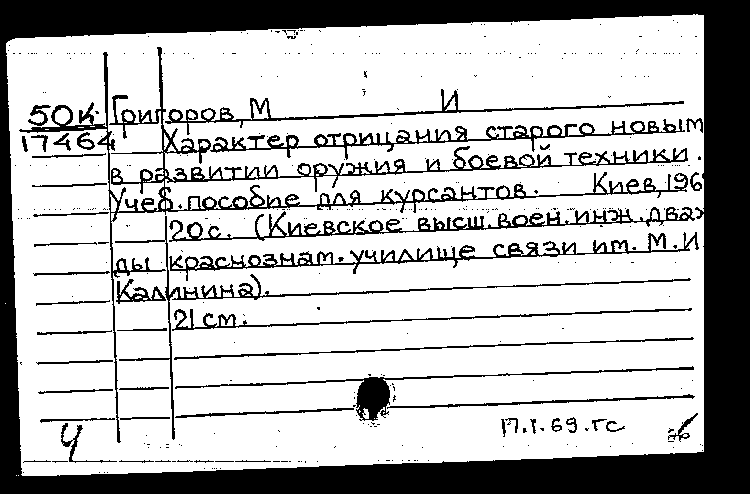 50К Григоров, М И
17464 Характер отрицания старого новым
в развитии оружия и боевой техники.
Учеб. пособие для курсантов. Киев, 196
20 с. (Киевское высш. воен. инж. дваж
ды краснознам. училище связи им. М.И.
Калинина).
21 см.
Ч
17.I.69.гс